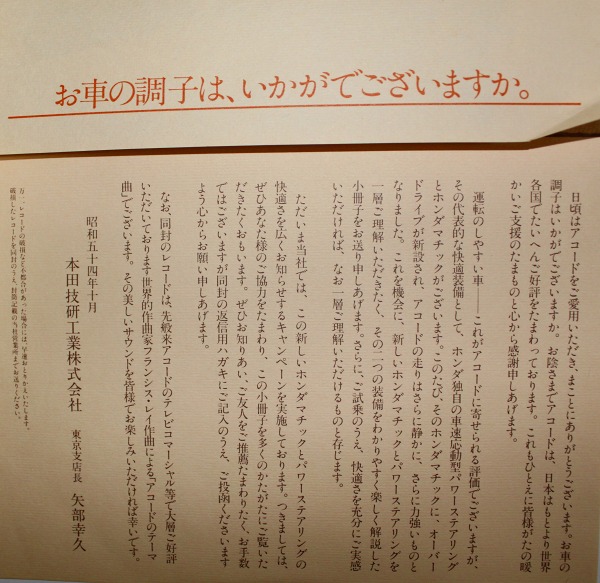 お車の調子は、いかがでございますか。
日頃はアコードをご愛用いただき、まことにありがとうございます。お車の
調子はいかがでございますか。お陰さまでアコードは、日本はもとより世界
各国でたいへんご好評をたまわっております。これもひとえに皆様がたの暖
かいご支援のたまものと心から感謝申しあげます。
運転のしやすい車——これがアコードに寄せられる評価でございますが、
その代表的な快適装備として、ホンダ独自の車速応動型パワーステアリング
とホンダマチックがございます。このたび、そのホンダマチックに、オーバー
ドライブが新設され、アコードの走りはさらに静かに、さらに力強いものと
なりました。これを機会に、新しいホンダマチックとパワーステアリングを
一層ご理解いただきたく、その二つの装備をわかりやすく楽しく解説した
小冊子をお送り申しあげます。さらに、ご試乗のうえ、快適さを充分にご実感
いただければ、なお一層ご理解いただけるものと存じます。
ただいま当社では、この新しいホンダマチックとパワーステアリングの
快適さを広くお知らせするキャンペーンを実施しております。つきましては、
ぜひあなた様のご協力をたまわり、この小冊子を多くのかたがたにご覧いた
だきたくおもいます。ぜひお知りあい、ご友人をご推薦たまわりたく、お手数
ではございますが同封の返信用ハガキにご記入のうえ、ご投函くださいます
よう心からお願い申しあげます。
なお、同封のレコードは、先般来アコードのテレビコマーシャル等で大層ご好評
いただいております世界的作曲家フランシス・レイ作曲による「アコードのテーマ
曲」でございます。その美しいサウンドを皆様でお楽しみいただければ幸いです。
昭和五十四年十月
本田技研工業株式会社 東京支店長 矢部幸久
万一、レコードの破損など不都合があった場合には、早速お取りかえいたします。
破損したレコードを同封のうえ、封筒記載の当社営業所までお送りください。